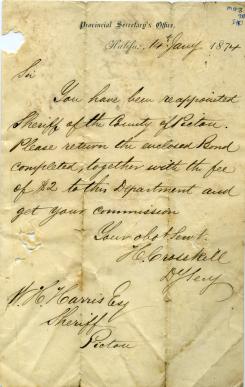 Provincial Secretary's Office,
Halifax, 14th Jany 1874
Sir
You have been reappointed
Sheriff of the County of Pictou.
Please return the enclosed Bond
completed, together with the fee
of $2 to this Department and
get your commission
Your obt Servt.
H. Crosskill
Dy Secy
W. H. Harris Esq
Sheriff
Pictou